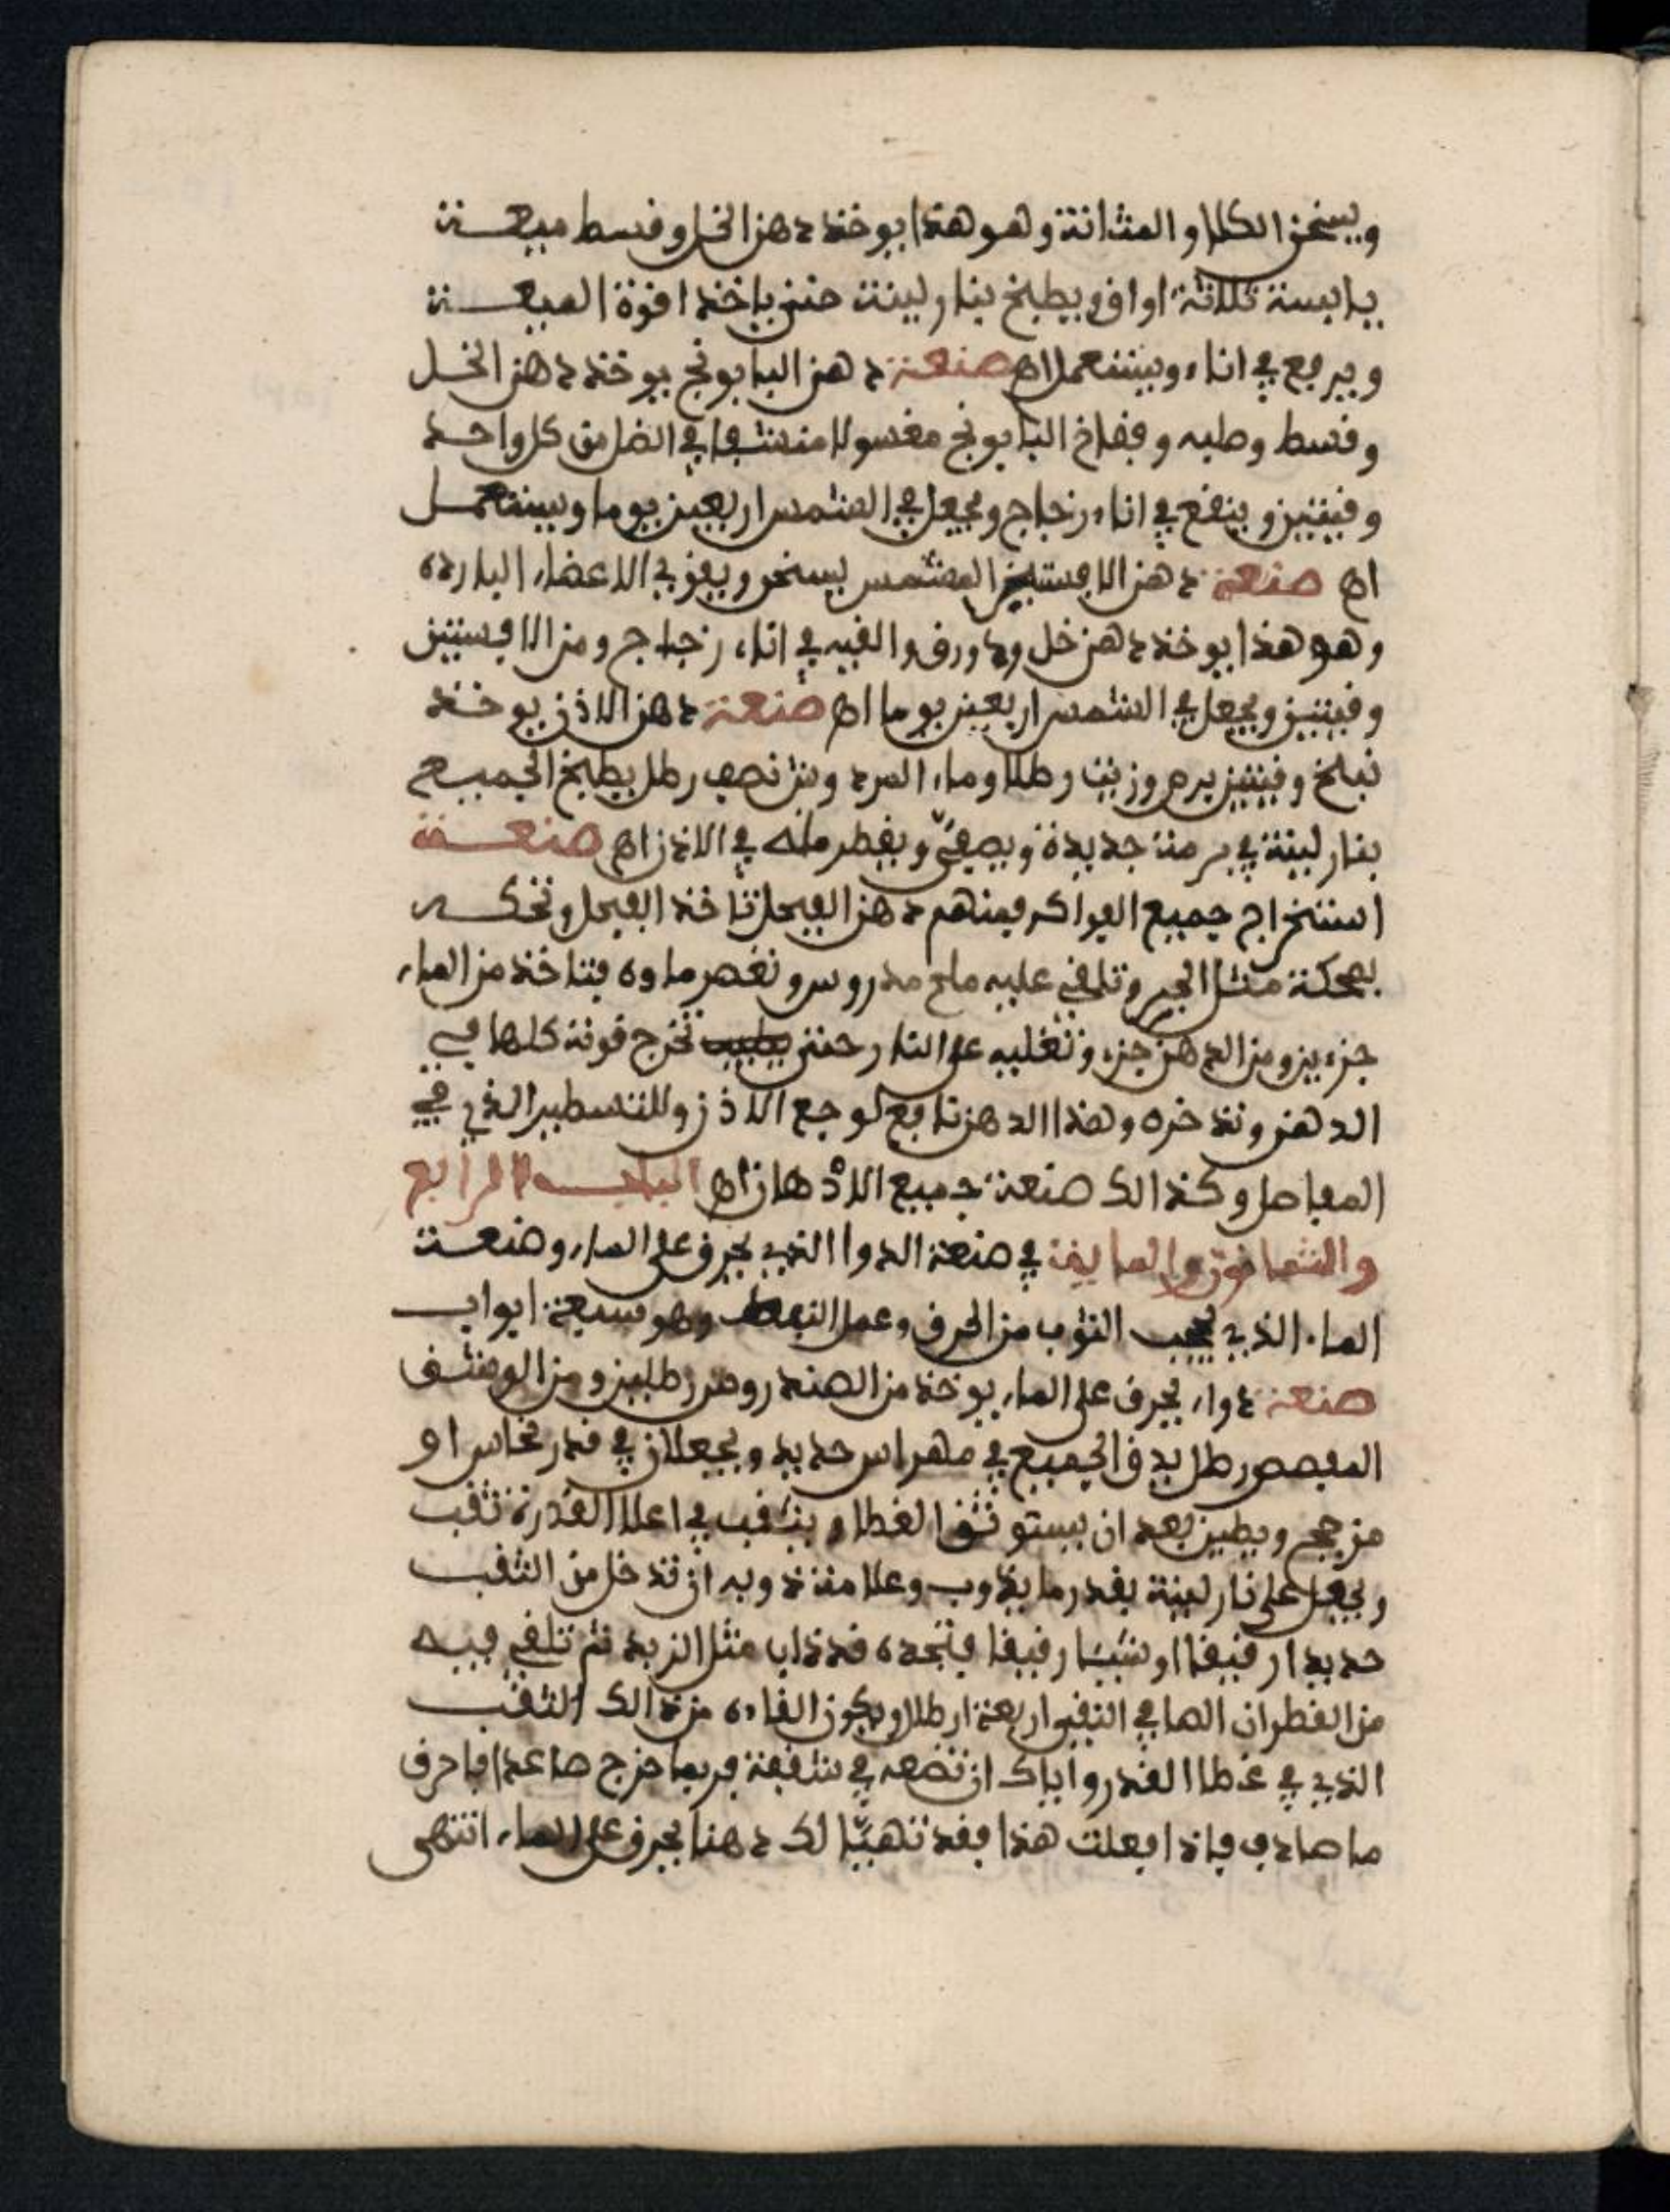 ويسخن الكلا والمثانة وهو هذا يوخذ دهن الخل وقسط ميعة
يابسة ثلاثة اواق ويطبخ بنار لينة حتى ياخذ قوة الميعة
ويرفع في اناء ويستعمل اه صنعة دهن البابونج يوخذ دهن الخل
وقسط وحلبه وفقاح البابونج مغسولا منشفا في الضل من كل واحد
وقيتين وينقع في اناء زجاج ويجعل في الشمس اربعين يوما ويستعمل
اه صنعة دهن الافستين المشمس يسخن ويقوي الاعضاء البارده
وهو هذا يوخذ دهن خل وورق والقيه في اناء زجاج ومن الافسنتين
وقيتين ويجعل في الشمس اربعين يوما اه صنعة دهن الاذن يوخذ
وقيتين وزيت رطلا وماء نصف رطل يطبخ الجميع
بنار لينة في برمة جديدة ويصفى ويقطر منه في الاذن اه صنعة
استخراج جميع الفواكه فمنهم دهن الفجل تاخذ الفجل وتحكه
بمحكة مثل الجبر وتلقي عليه ملح مدروس وتعصر ماوه فتاخذ من الماء
جزءين ومن الدهن جزء وتغليه على النار حتى تخرج قوته كلها في
الدهن وتدخره وهذا الدهن نافع لوجع الاذن وللتسطير الذي في
المفاصل وكذالك صنعة جميع الادهان اه الباب الرابع
والثمانون والماية في صنعة الدوا الذي يحرق على الماء وصنعة
الماء الذي يحجب الثوب من الحرق وعمل النفط وهو سبعة ابواب
صنعة دواء يحرق على الماء يوخذ من الصندروس رطلين ومن الوشق
المفصص رطل يدق الجميع في مهراس حديد ويجعلان في قدر نحاس او
من حجر ويطين بعد ان يستوثق الغطا ويثقب في اعلا القدرة ثقب
ويجعل على نار لينة بقدر ما يذوب وعلامة ذوبه ان تدخل من الثقب
حديدا رقيقا او شيئا رقيقا فتجده قد ذاب مثل الزبد ثم تلقي فيه
من القطران الصافي النقي اربعة ارطال ويكون القاءه من ذالك الثقب
الذي في غطا القدر واياك ان تضعه في شقفة فربما خرج صاعدا فاحرق
ما صادف فاذا فعلت هذا فقد تهيا لك دهنا يحرق على الماء انتهى